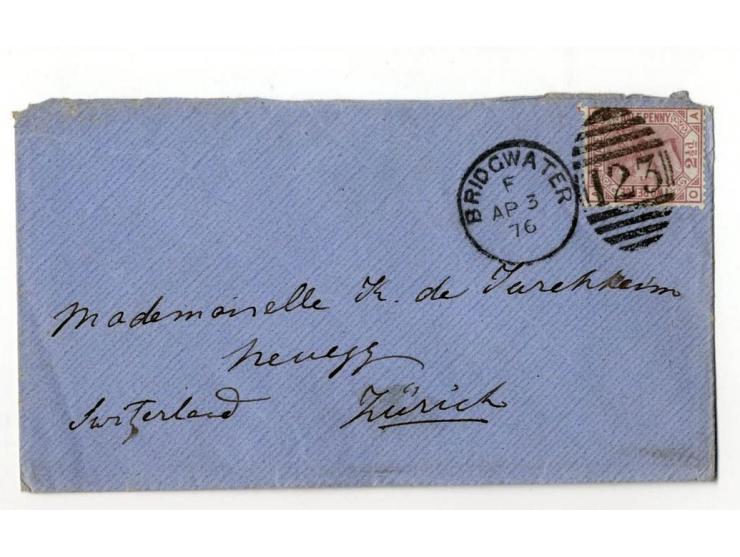 BRIDGWATER
F
AP 3
76
123
PENNY
2½d
A
O
Mademoiselle K. de Turckheim
Neuegg
Switzerland Zürich